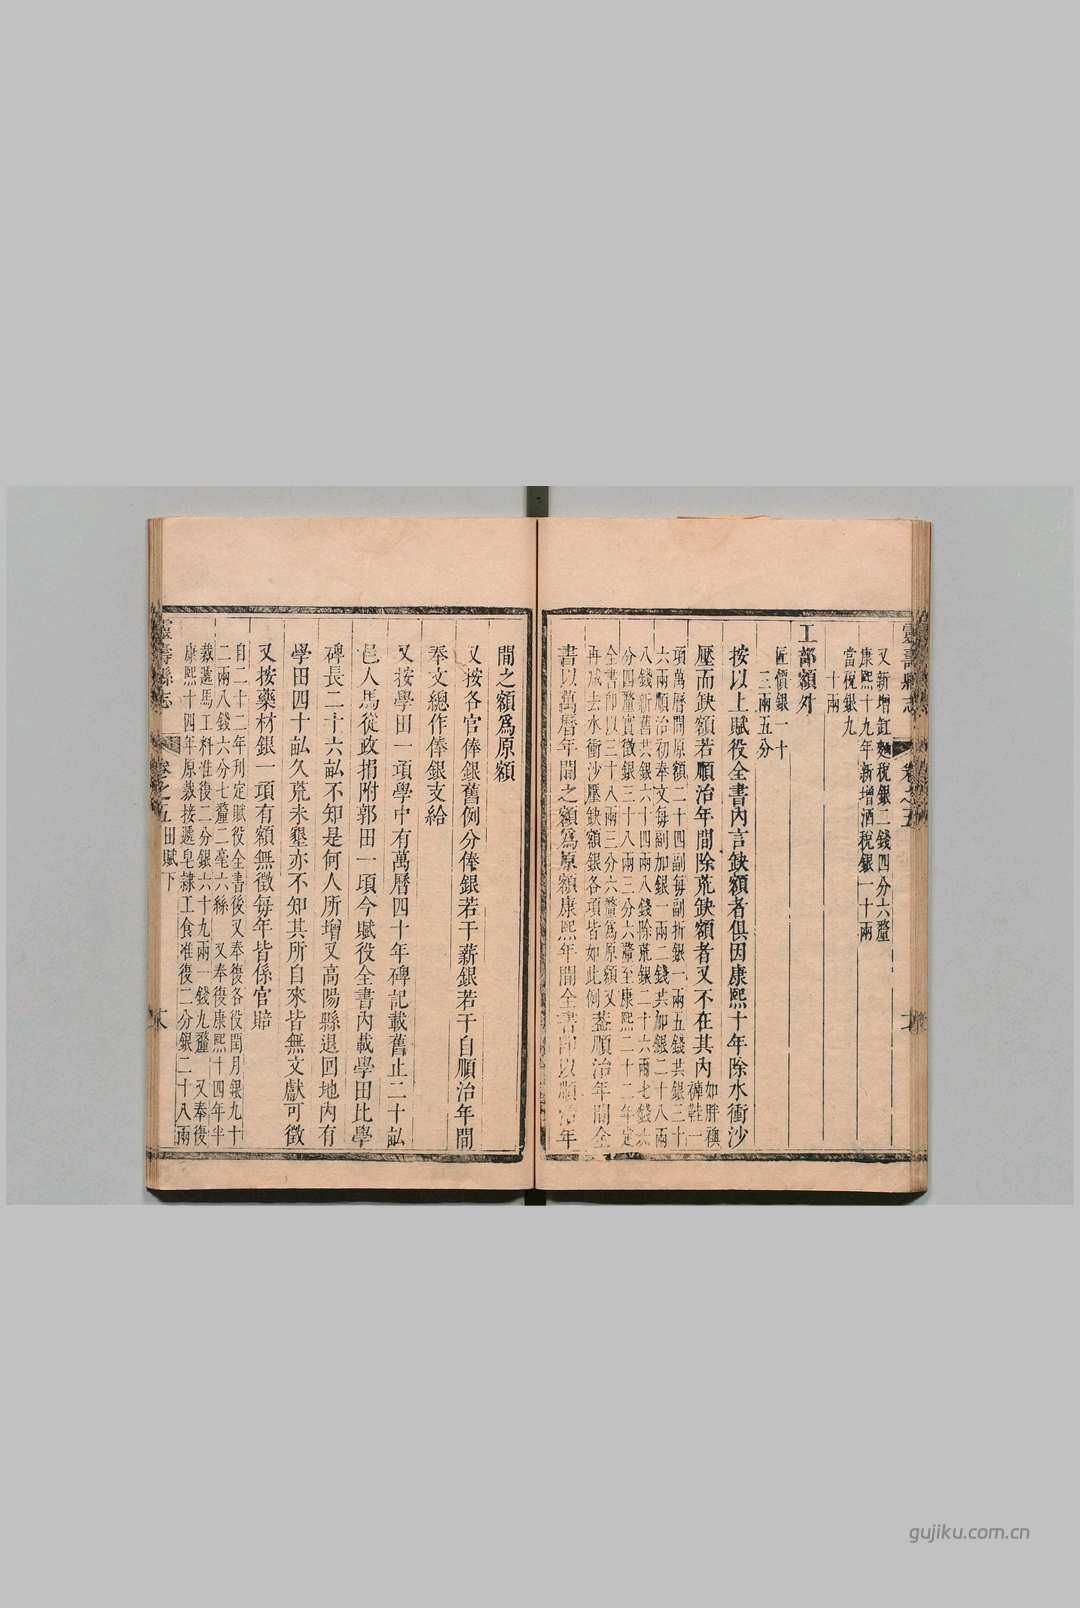 靈壽縣志 卷之五
又新增缸麯稅銀二錢四分六釐
康熙十九年新增酒稅銀一十兩
當稅銀九
十兩
工部額外
匠價銀一十
三兩五分
按以上賦役全書內言缺額者俱因康熙十年除水衝沙
壓而缺額若順治年間除荒缺額者又不在其內如胖襖
褲鞋一
項萬曆間原額二十四副每副折銀一兩五錢共銀三十
六兩順治初奉文每副加銀一兩二錢共加銀二十八兩
八錢新舊共銀六十四兩八錢除荒銀二十六兩七錢
分四釐實徵銀三十八兩三分六釐至康熙二十二年定
全書卽以三十八兩三分六釐為原額又
再減去水衝沙壓缺額銀各項皆如此例蓋順治年間全
書以萬曆年間之額為原額康熙年間全書卽以順治年
間之額為原額
又按各官俸銀舊例分俸銀若干薪銀若干自順治年間
奉文總作俸銀支給
又按學田一項學中有萬曆四十年碑記載舊止二十畝
邑人馬從政捐附郭田一項今賦役全書內載學田比學
碑長二十六畝不知是何人所增又高陽縣退回地內有
學田四十畝久荒未墾亦不知其所自來皆無文獻可徵
又按藥材銀一項有額無徵每年皆係官賠
自二十二年刊定賦役全書後又奉復各役閏月銀九十
二兩八錢六分七釐二毫六絲 又奉復康熙十四年半
裁遞馬工料准復二分銀六十九兩一錢九釐 又奉復
康熙十四年原裁接遞皂隸工食准復二分銀二十八兩
靈壽縣志 卷之五田賦下